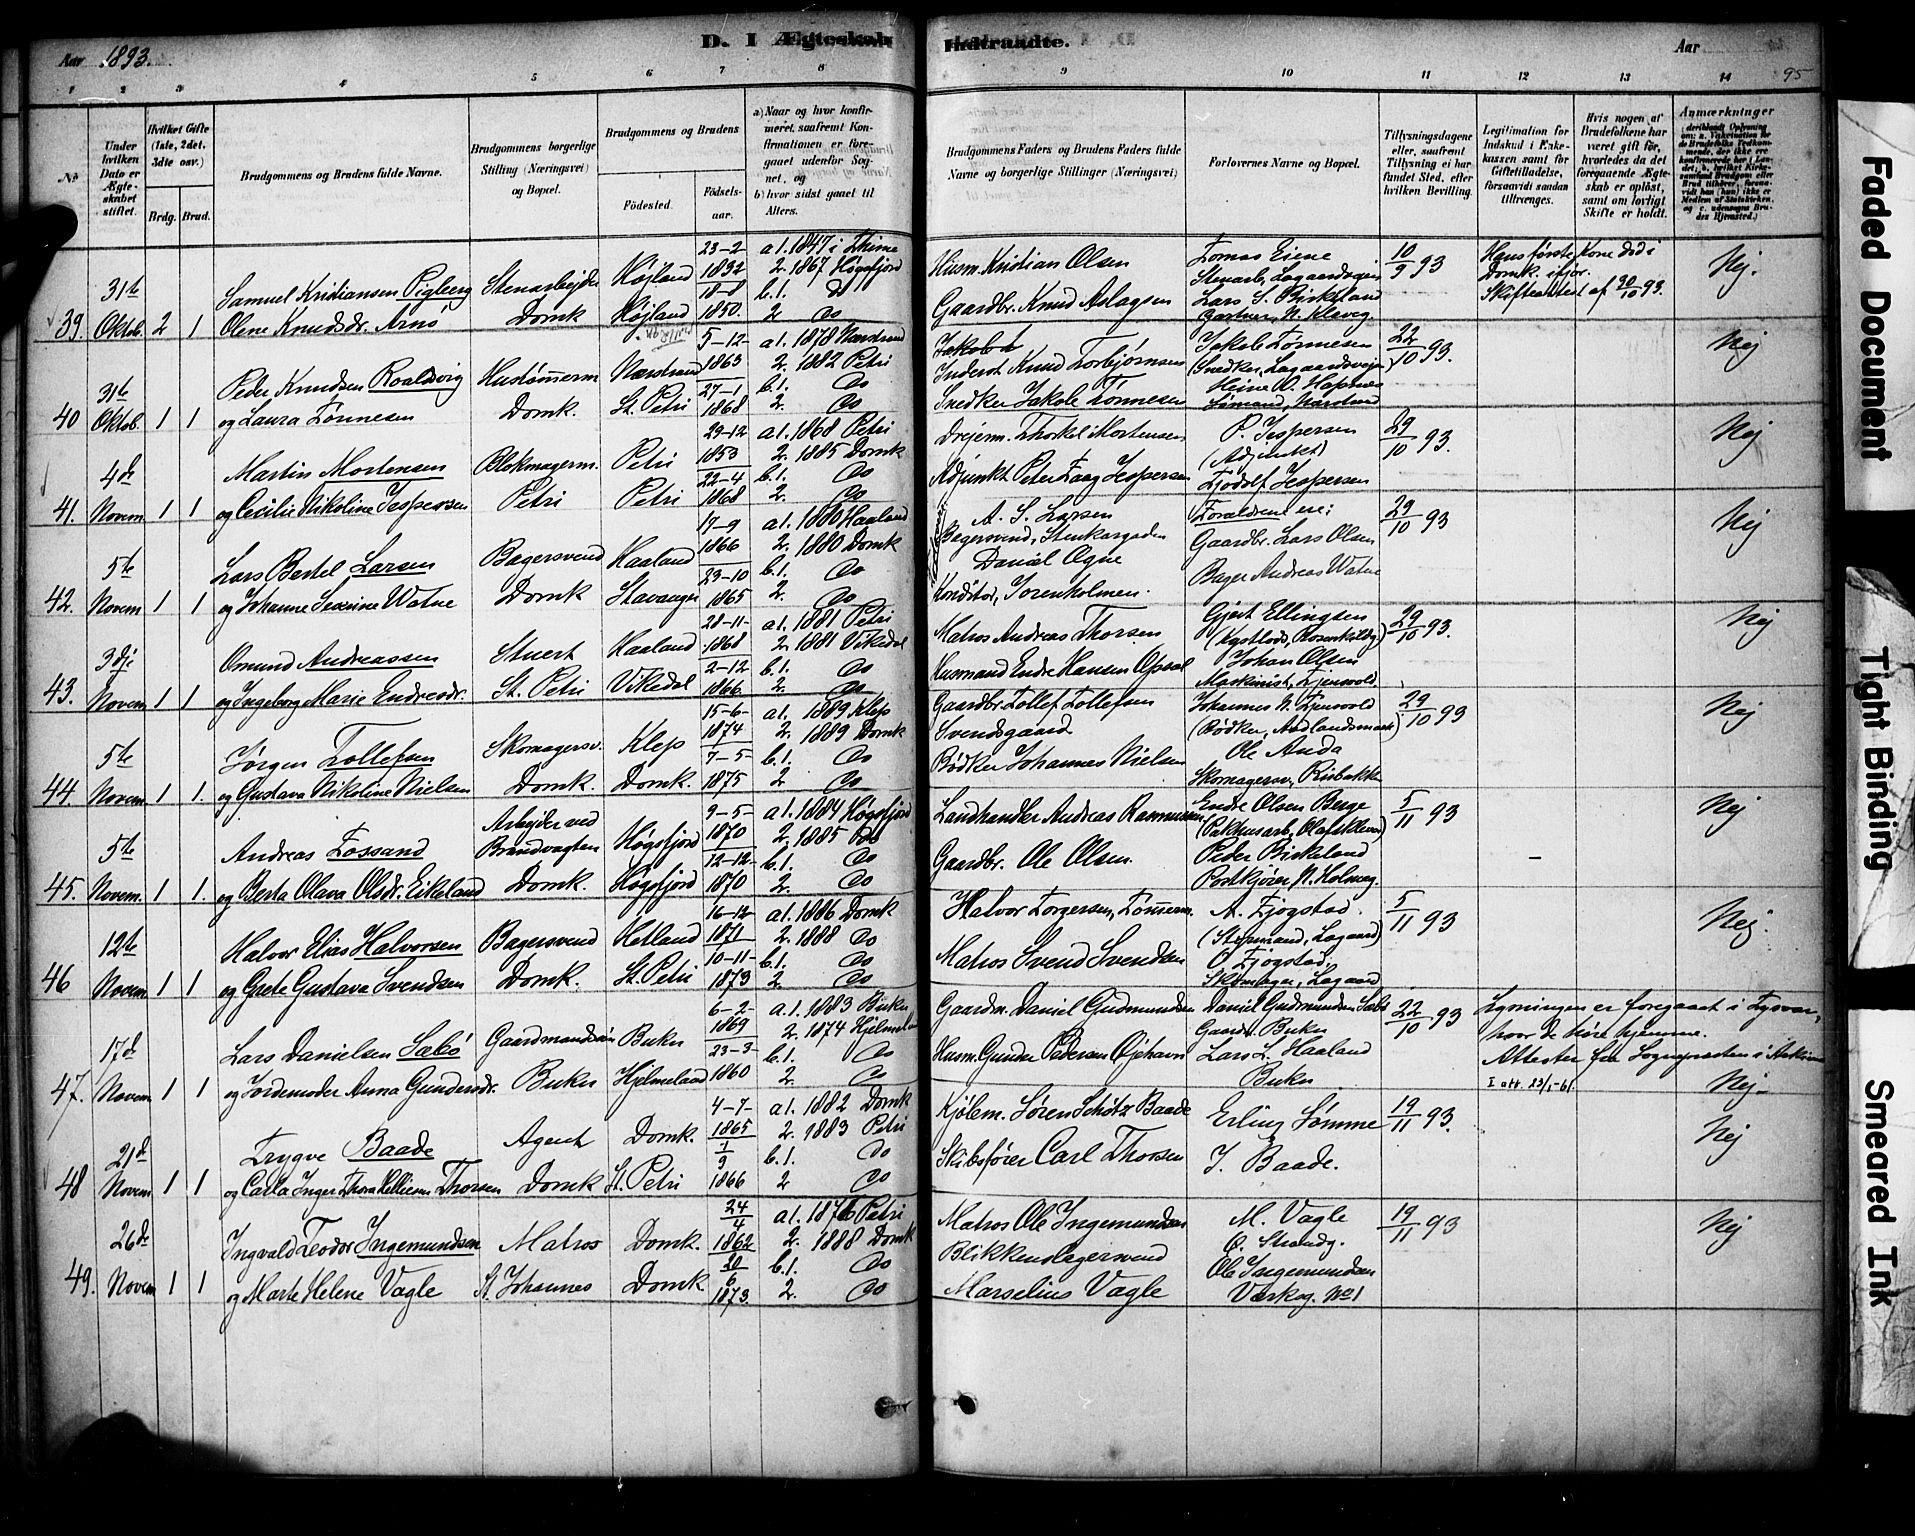 Aar 1893.
D. I Ægteskab Indtraadte.
Aar
95
1 2 3 4 5 6 7 8 9 10 11 12 13 14
No
Under hvilken Dato er Ægteskabet stiftet.
Hvilket Gifte (1ste, 2det, 3dte osv.)
Brdg. Brud.
Brudgommens og Brudens fulde Navne.
Brudgommens borgerlige Stilling (Næringsvei) og Bopæl.
Brudgommens og Brudens
Fødested.
Fødselsaar.
a) Naar og hvor konfirmeret, saafremt Konfirmationen er foregaaet udenfor Sognet, og
b) hvor sidst gaaet til Alters.
Brudgommens Faders og Brudens Faders fulde Navne og borgerlige Stillinger (Næringsvei)
Forlovernes Navne og Bopæl.
Tillysningsdagene eller, saafremt Tillysning ei har fundet Sted, efter hvilken Bevilling.
Legitimation for Indskud i Enkekassen samt for Giftetilladelse, forsaavidt saadan tiltrænges.
Hvis nogen af Brudefolkene har været gift før, hvorledes da det foregaaende Ægteskab er opløst, samt om lovligt Skifte er holdt.
Anmærkninger
39. 31te Oktob. 2 1
Samuel Kristiansen Pigberg
Olene Knudsdr. Arnö
Stenarbejder Domk
Højland Højland
23-2 1832 18-8 1850.
a1. 1847 i Thime
2. 1867 Høgsfjord
b.1. do
2 do
Husm. Kristian Olsen
Gaardbr. Knud Aslagsen
Tomas Eiene
Stenarb., Lagaardsveien
Lars S. Birkeland
Gartner, N. Kleveg.
10/9 93
Hans første Kone død i Domk. ifjor.
Skifteattest af 30/10 93.
Nej.
40 31te Oktob. 1 1
Peder Knudsen Roaldsvig
og Laura Tönnesen
Hustømmerm. Domk.
Nærstrand St. Petri
5-12 1863 27-1 1868
a1. 1878 Nærstrand
2. 1882 Petri
b.1. do
2. do
Jakob
Inderst Knud Torbjørnsen
Snedker Jakob Tönnesen
Jakob Tönnesen
(Snedker, Lagaardsveien)
Heine O. Hapnes
Sømand, Nærstrand
22/10 93.
Nej
41. 4de Novem. 1 1
Martin Mortensen
og Cecilie Nikoline Jespersen
Blokmagerm. Petri
Petri Petri
29-12 1853 22-4 1868
a1. 1868 Petri
2. 1885 Domk
b.1. do
2. do
Drejerm. Thorkel Mortensen
Adjunkt Peter Faag Jespersen
P. Jespersen
(Adjunkt)
Tjodolf Jespersen
29/10 93.
Nej
42. 5te Novem 1 1
Lars Bertel Larsen
og Johanne Severine Watne
Bagersvend Domk
Haaland Stavanger
17-9 1866 23-10 1865
a1. 1880 Haaland
2. 1880 Domk
b.1. do
2. do
A. S. Larsen
Bagersvend, Stenkargaden
Daniel Ogne
Konditor, Jorenholmen.
Forældrene ere:
Gaardbr. Lars Olsen
Bager Andreas Watne
29/10 93
Nej
43. 3dje Novem. 1 1
Omund Andreassen
og Ingeborg Marie Endresdr.
Stuert St. Petri
Haaland Vikedal
28-11- 1868 2-12 1866
a1. 1881 Petri
2 1881 Vikedal
b.1. do
2. do
Matros Andreas Thorsen
Husmand Endre Hansen Opsal
Gjert Ellingsen
(Kystlods, Rosenkildeg)
Johan Olsen
Maskinist, Tjensvold.
29/10 93.
Nej
44 5te Novem. 1 1.
Jørgen Tollefsen
og Gustava Nikoline Nielsen
Skomagersv. Domk.
Klep Domk.
15-6- 1874 7-5- 1875
a1. 1889 Klep
2. 1889 Domk
b.1. do
2 do
Gaardbr. Tollef Tollefsen
Svendsgaard
Bødker Johannes Nielsen
Johannes N. Tjensvold
(Bødker, Aadlandsmark)
Ole Anda
Skomagersv., Risbakken
29/10 93
Nej
45. 5te Novem. 1 1.
Andreas Fossand
og Berta Olava Olsdr. Eikeland
Arbejder ved Brandvagten Domk.
Høgsfjord Høgsfjord
9-5- 1870 12-12- 1870
a1. 1884 Høgsfjord
2. 1885 Do
b.1. do
2. do
Landhandler Andreas Rasmussen
Gaardbr. Ole Olsen.
Endre Olsen Berge
(Pakhusarb, Olafskleven)
Peder Birkeland
Postkjører, N. Holmeg.
5/11 93
–
Nej
46 12te Novem. 1 1
Halvor Elias Halvorsen
og Grete Gustava Svendsen
Bagersvend Domk.
Hetland St. Petri
16-12 1871 10-11- 1873
a1. 1886 Domk
2. 1888 do
b.1. do
2 do
Halvor Torgersen, Tømmerm.
Matros Svend Svendsen
A. Tjogstad.
(Stopmand, Lagaard)
O Tjogstad.
Skomager, Lagaard
5/11 93
Nej.
47. 17de Novem. 1 1
Lars Danielsen Sæbö
og Jordemoder Anna Gundersdr.
Gaardmandssön Buken
Buken Hjelmeland
6-2- 1869 23-3- 1860
a.1. 1883 Buken
2. 1874 Hjelmeland
b.1. do
2. do
Gaardm. Daniel Gudmundsen
Husm. Gunder Pedersen Øjehavn
Daniel Gudmundsen Sæbö
Gaardbr. Buken
Lars L. Haaland
Buken
22/10 93
Lysningen er foregaaet i Tysvær, hvor de høre hjemme.
Attester fra Sognepresten i
I att. 23/1-61.
Nej.
48 21de Novem. 1 1
Trygve Baade
og Carla Inger Thora Kelliesen Thorsen
Agent Domk
Domk. St. Petri
4-7- 1865 1/9 1866
a1. 1882 Domk
2. 1883 Petri
b.1. do
2 do
Kjølem. Søren Schötz Baade
Skibsfører Carl Thorsen
Erling Sømme
J. Baade.
19/11 93.
Nej
49. 26de Novem 1 1
Ingvald Teodor Ingemundsen
og Marte Helene Vagle
Matros St. Johannes
Domk. Domk
24/4 1862 20/6 1873.
a1. 1876 Petri
2. 1888 Domk
b.1. do
2. do
Matros Ole Ingemundsen
Blikkenslagersvend
Marselius Vagle
M. Vagle
Ø. Strandg.
Ole Ingemundsen
Værksg. No 1
19/11 93
Nej
Faded Document
Tight Binding
Smeared Ink